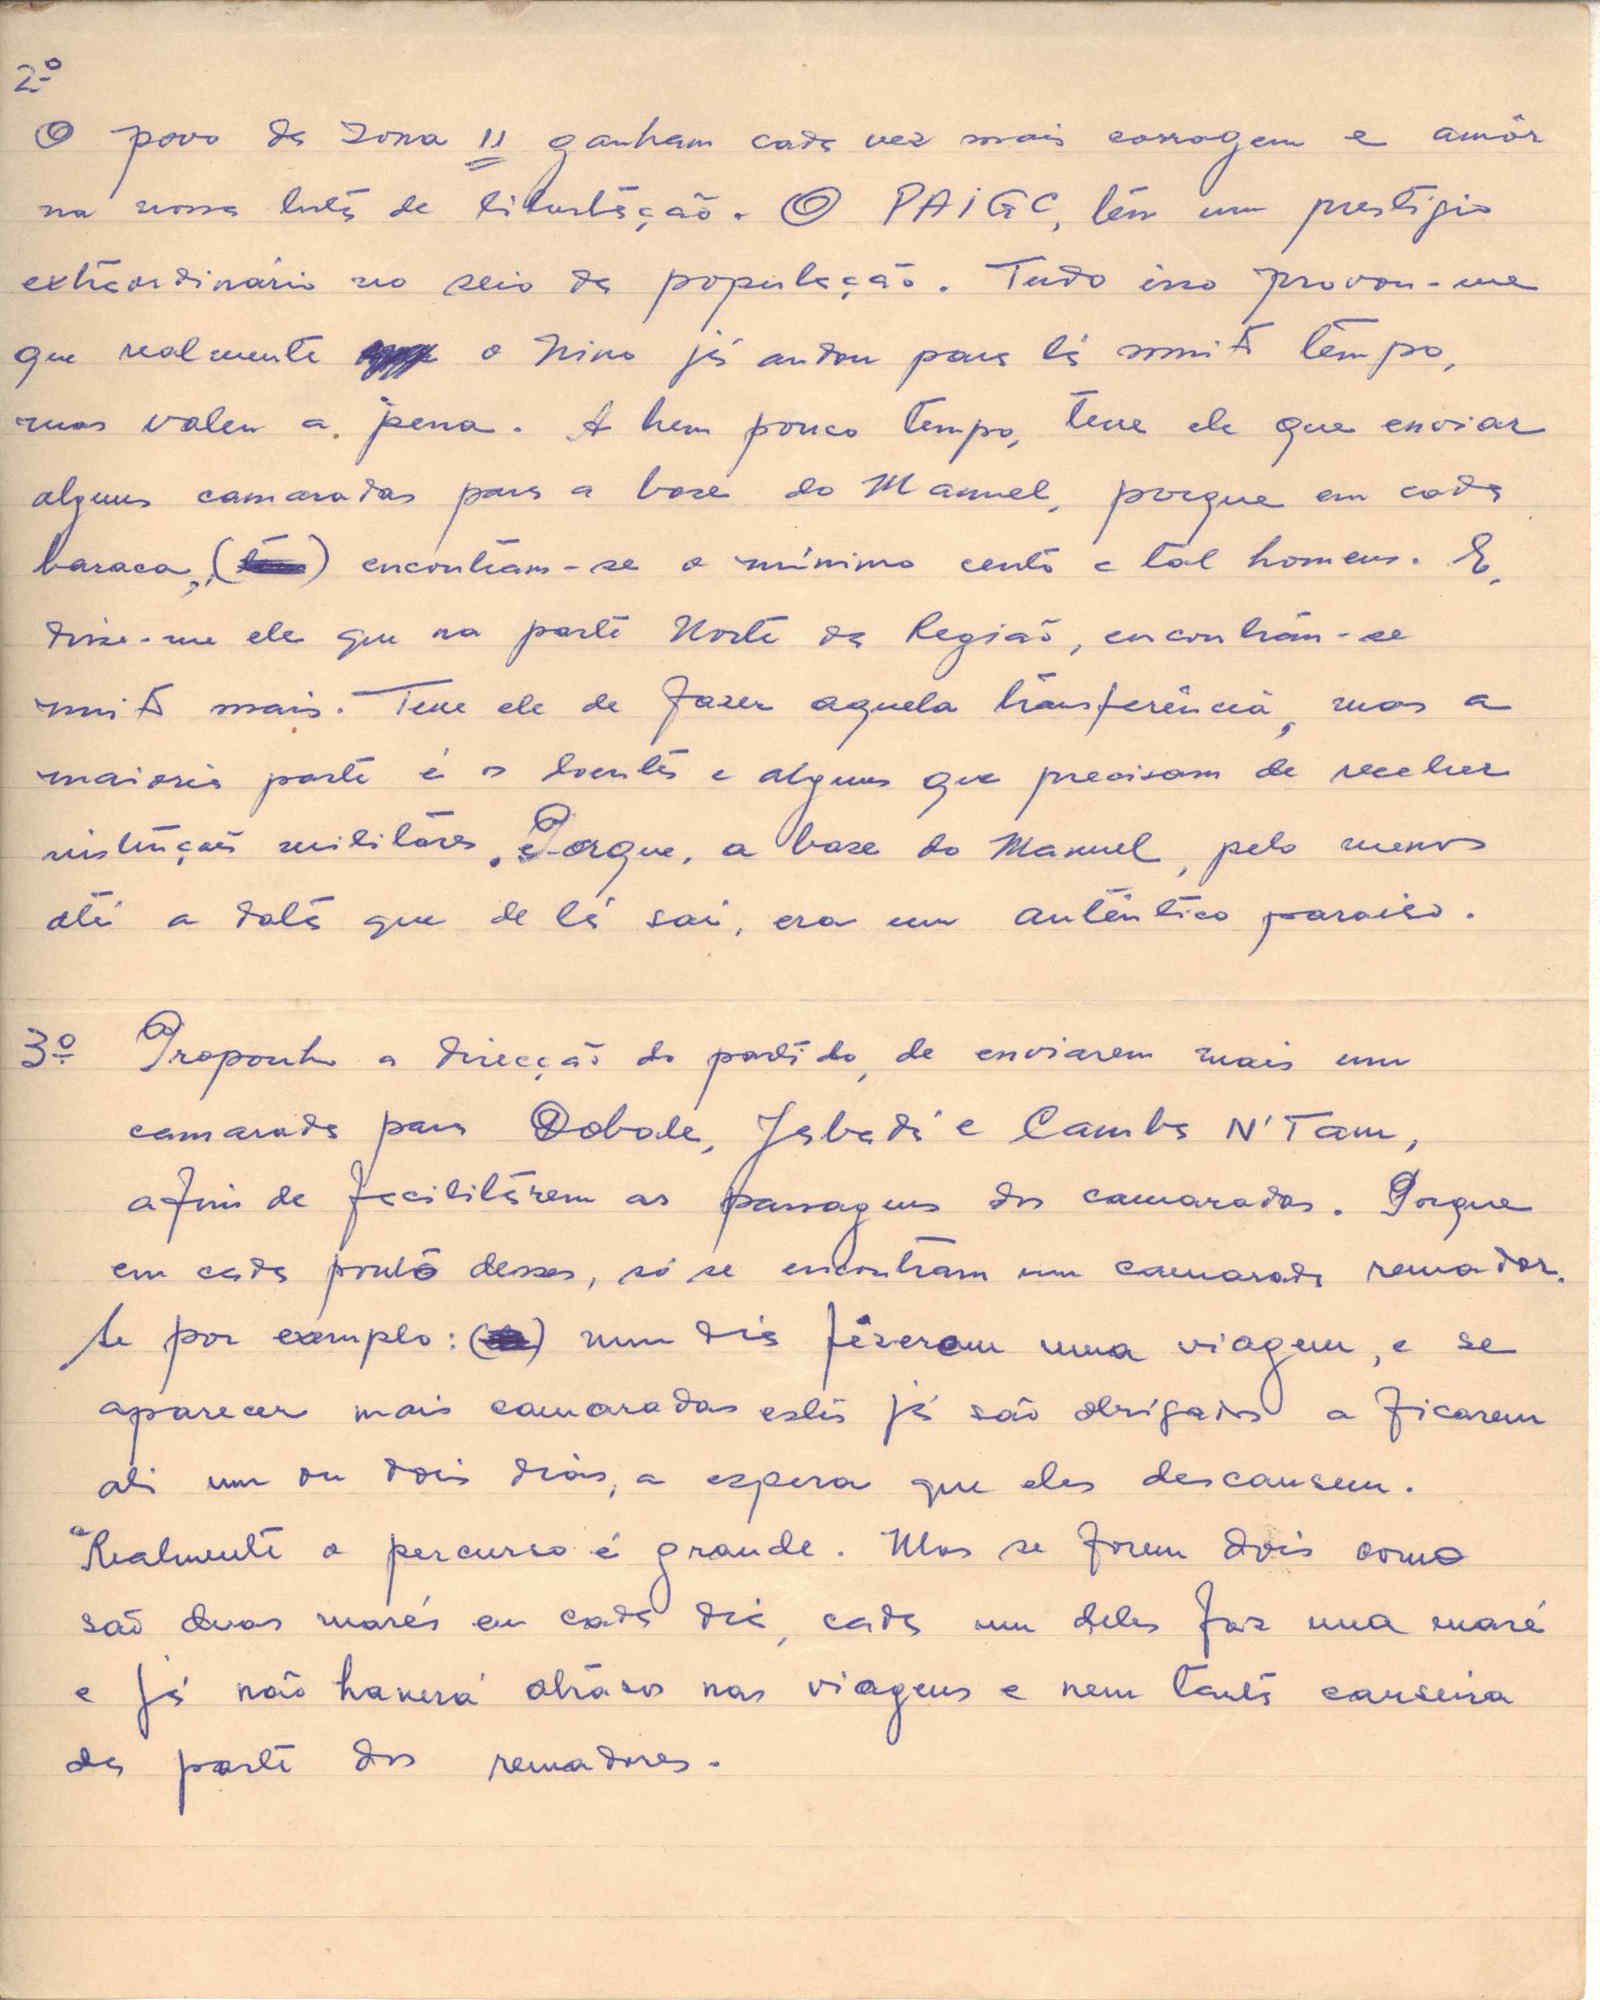 2º
O povo da Zona 11 ganham cada vez mais corragem e amôr
na nossa luta de libertação. O PAIGC, têm um prestígio
extraordinário no seio da população. Tudo isso provou-me
que realmente o Nino já andou para lá muito têmpo,
mas valeu a pena. A bem pouco tempo, teve ele que enviar
alguns camaradas para a base do Manuel, porque em cada
baraca, encontram-se o mínimo cento e tal homens. E,
disse-me ele que na parte Norte da Região, encontrám-se
muito mais. Teve ele de fazer aquela transferência, mas a
maioria parte é os doentes e alguns que precisam de receber
instruções militáres. Porque, a base do Manuel, pelo menos
até a data que de lá sai, era um autêntico paraiso.
3º Proponho a direcção do partido, de enviarem mais um
camarada para Dobale, Jabadá e Camba N'Tam,
afim de facilitárem as passagens dos camaradas. Porque
em cada ponto desses, só se encontram um camarada remador.
Se por exemplo: num dia fêzeram uma viagem, e se
aparecer mais camaradas estes já são obrigados a ficarem
ali um ou dois dias, a espera que eles descansem.
Realmente o percurso é grande. Mas se forem dois como
são duas marés em cada dia, cada um deles faz uma maré
e já não haverá atrasos nas viagens e nem tanta canseira
da parte dos remadores.